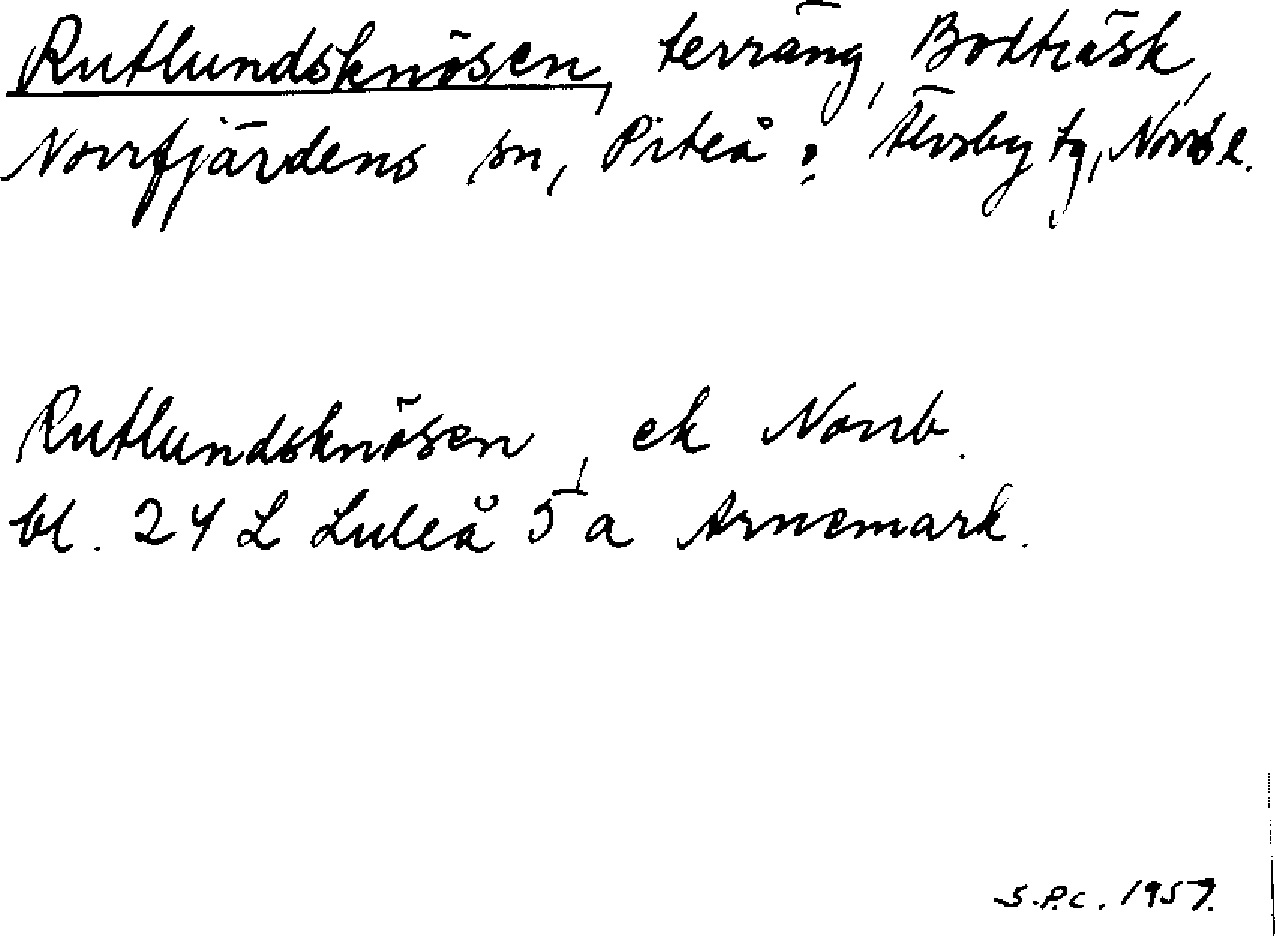 Rutlundsknösen, terräng, Bodträsk,
Norrfjärdens sn, Piteå o. Älvsby tg, Norrb l.
Rutlundsknösen, ek Norrb.
bl. 24 L Luleå 5 a Arnemark.
S.P.C. 1957.